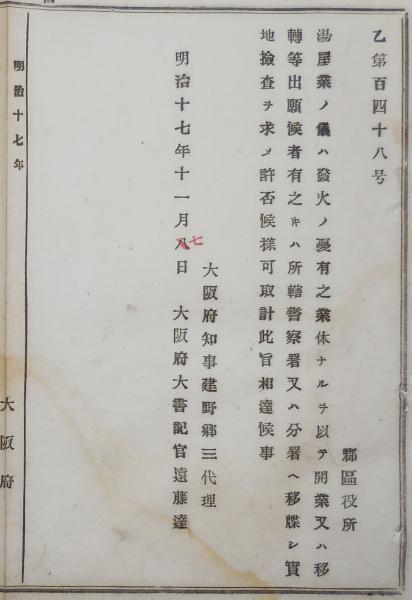 乙第百四十八号
郡區役所
湯屋業ノ儀ハ發火ノ憂有之業体ナルヲ以テ開業又ハ移
轉等出願候者有之𪜈ハ所轄警察署又ハ分署ヘ移牒シ實
地撿査ヲ求メ許否候様可取計此旨相達候事
大阪府知事建野郷三代理
明治十七年十一月八七日 大阪府大書記官遠藤達
明治十七年
大阪府